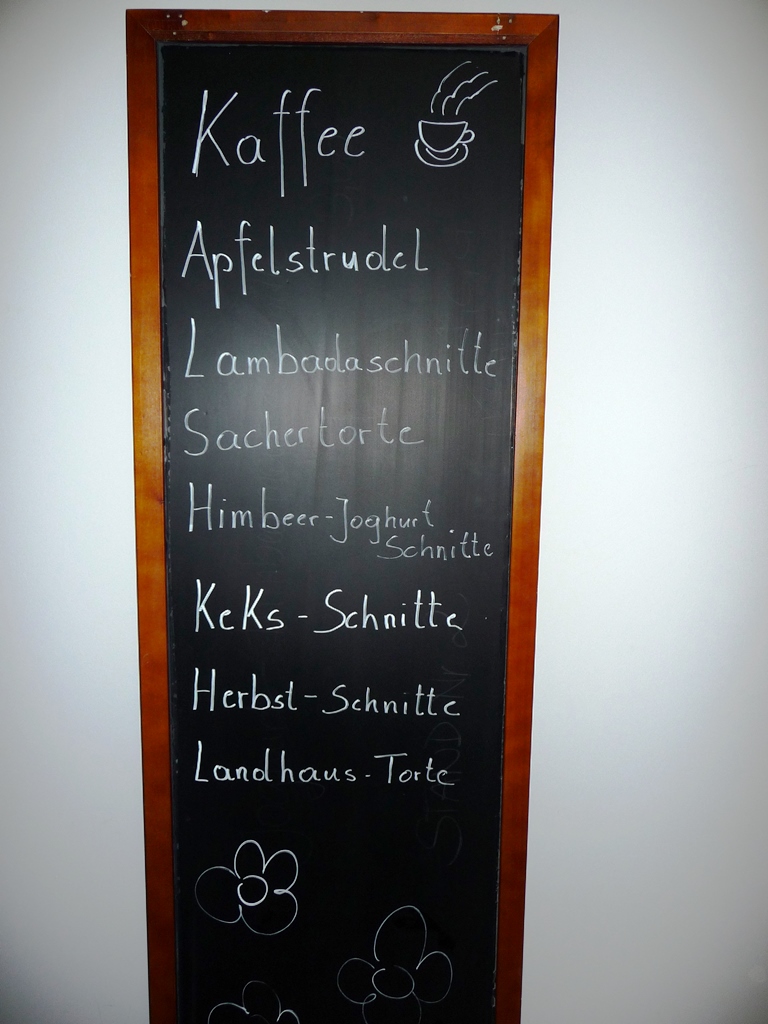 Kaffee
Apfelstrudel
Lambadaschnitte
Sachertorte
Himbeer-Joghurt
Schnitte
Keks-Schnitte
Herbst-Schnitte
Landhaus-Torte